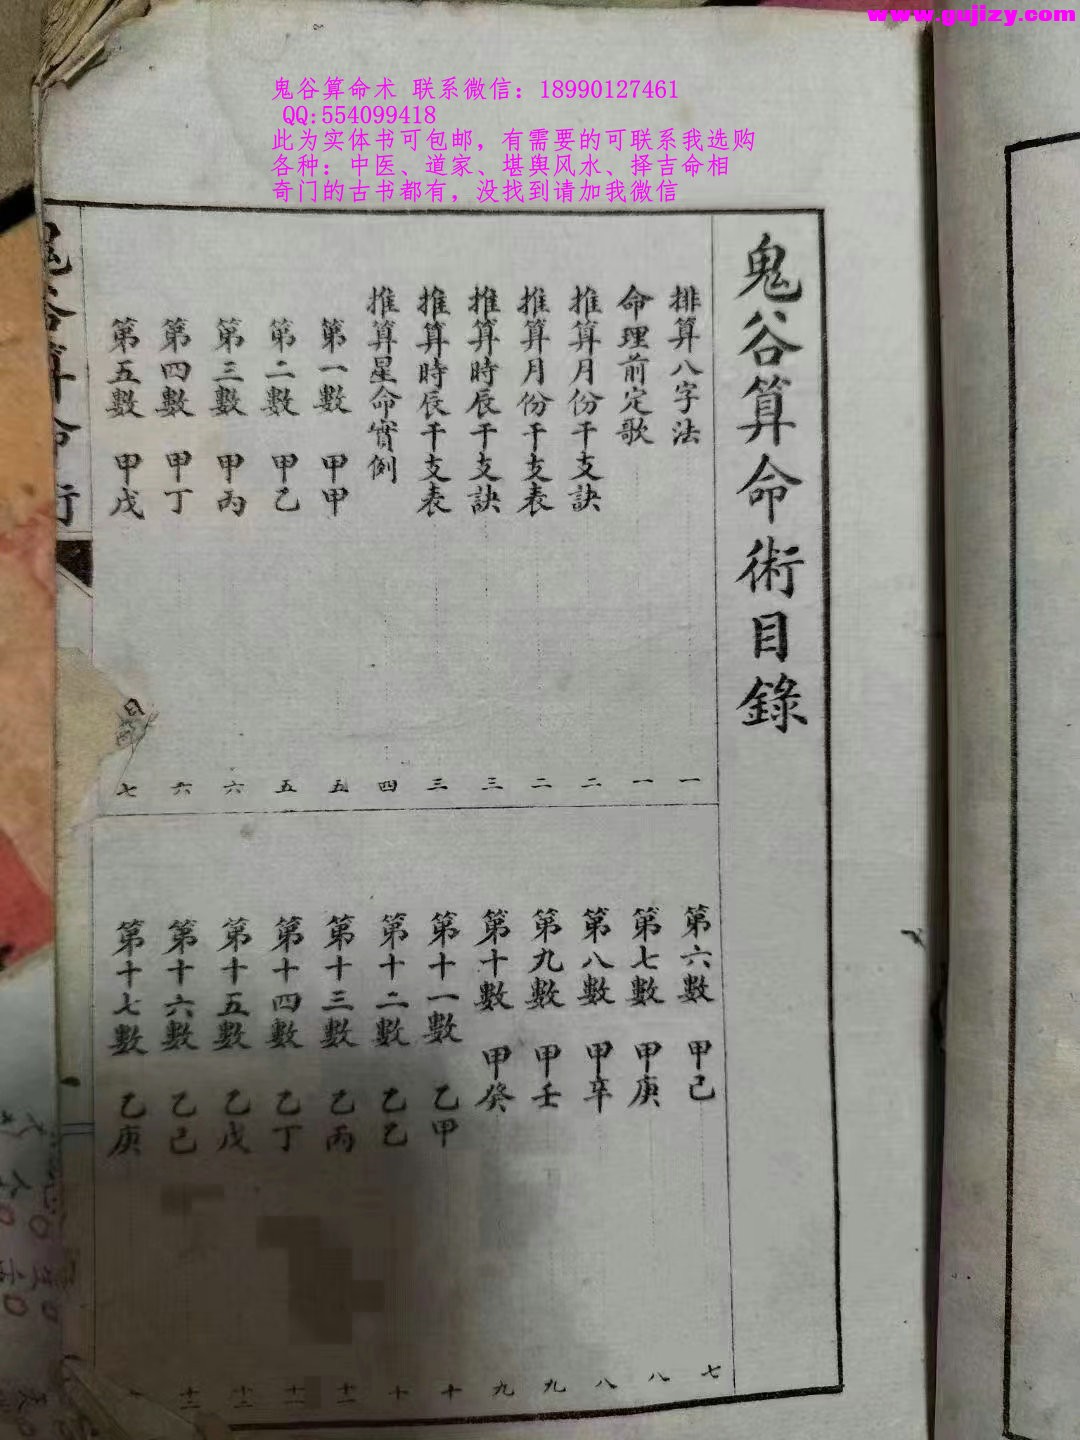 www.gujizy.com
鬼谷算命术 联系微信：18990127461
QQ:554099418
此为实体书可包邮，有需要的可联系我选购
各种：中医、道家、堪舆风水、择吉命相
奇门的古书都有，没找到请加我微信
鬼谷算命術目錄
排算八字法 一
命理前定歌 一
推算月份干支訣 二
推算月份干支表 二
推算時辰干支訣 三
推算時辰干支表 三
推算星命實例 四
第一數 甲甲 五
第二數 甲乙 五
第三數 甲丙 六
第四數 甲丁 六
第五數 甲戊 七
第六數 甲己 七
第七數 甲庚 八
第八數 甲辛 八
第九數 甲壬 九
第十數 甲癸 九
第十一數 乙甲 十
第十二數 乙乙 十
第十三數 乙丙 十一
第十四數 乙丁 十一
第十五數 乙戊 十二
第十六數 乙己 十二
第十七數 乙庚
鬼谷算命術